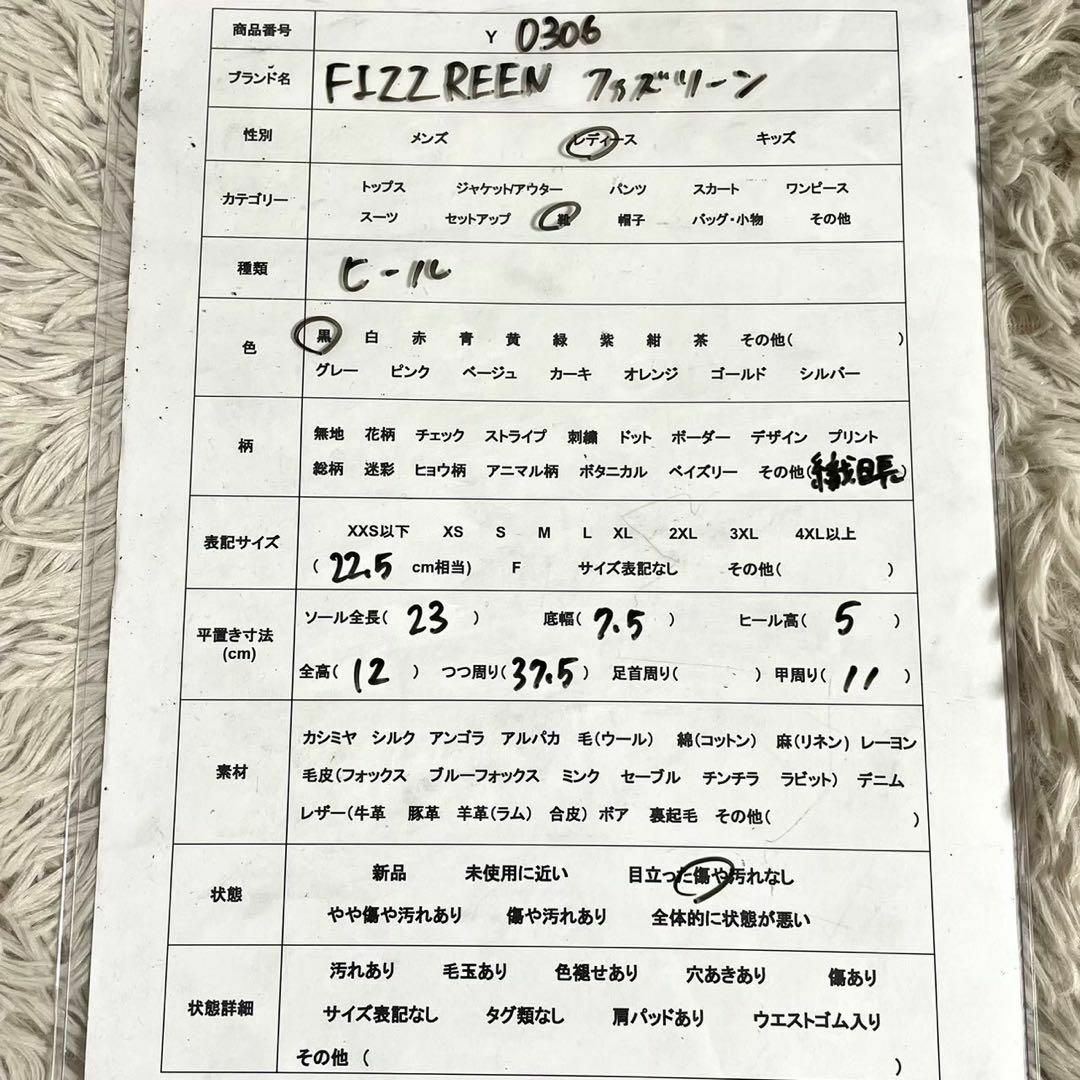 商品番号 Y 0306
ブランド名 FIZZREEN フィズリーン
性別 メンズ レディース キッズ
カテゴリー トップス ジャケット/アウター パンツ スカート ワンピース
スーツ セットアップ 靴 帽子 バッグ・小物 その他
種類 ヒール
色 黒 白 赤 青 黄 緑 紫 紺 茶 その他( )
グレー ピンク ベージュ カーキ オレンジ ゴールド シルバー
柄 無地 花柄 チェック ストライプ 刺繍 ドット ボーダー デザイン プリント
総柄 迷彩 ヒョウ柄 アニマル柄 ボタニカル ペイズリー その他( )
表記サイズ XXS以下 XS S M L XL 2XL 3XL 4XL以上
( 22.5 cm相当) F サイズ表記なし その他( )
平置き寸法
(cm)
ソール全長( 23 ) 底幅( 7.5 ) ヒール高( 5 )
全高( 12 ) つつ周り( 37.5 ) 足首周り( ) 甲周り( 11 )
素材 カシミヤ シルク アンゴラ アルパカ 毛(ウール) 綿(コットン) 麻(リネン) レーヨン
毛皮(フォックス ブルーフォックス ミンク セーブル チンチラ ラビット) デニム
レザー(牛革 豚革 羊革(ラム) 合皮) ボア 裏起毛 その他( )
状態 新品 未使用に近い 目立った傷や汚れなし
やや傷や汚れあり 傷や汚れあり 全体的に状態が悪い
状態詳細 汚れあり 毛玉あり 色褪せあり 穴あきあり 傷あり
サイズ表記なし タグ類なし 肩パッドあり ウエストゴム入り
その他 ( )